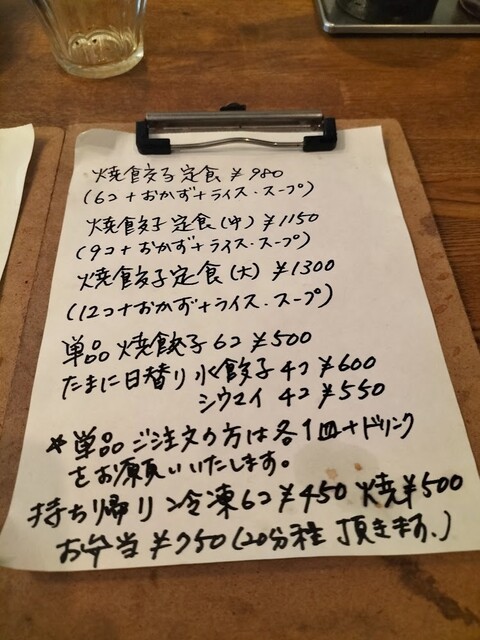 焼餃子定食 ¥980
(6コ+おかず+ライス・スープ)
焼餃子定食(中) ¥1150
(9コ+おかず+ライス・スープ)
焼餃子定食(大) ¥1300
(12コ+おかず+ライス・スープ)
単品 焼餃子 6コ ¥500
たまに日替り 水餃子 4コ ¥600
シウマイ 4コ ¥550
*単品ご注文の方は各1皿+ドリンク
をお願いいたします。
持ち帰り 冷凍6コ¥450 焼¥500
お弁当 ¥950(20分程頂きます。)